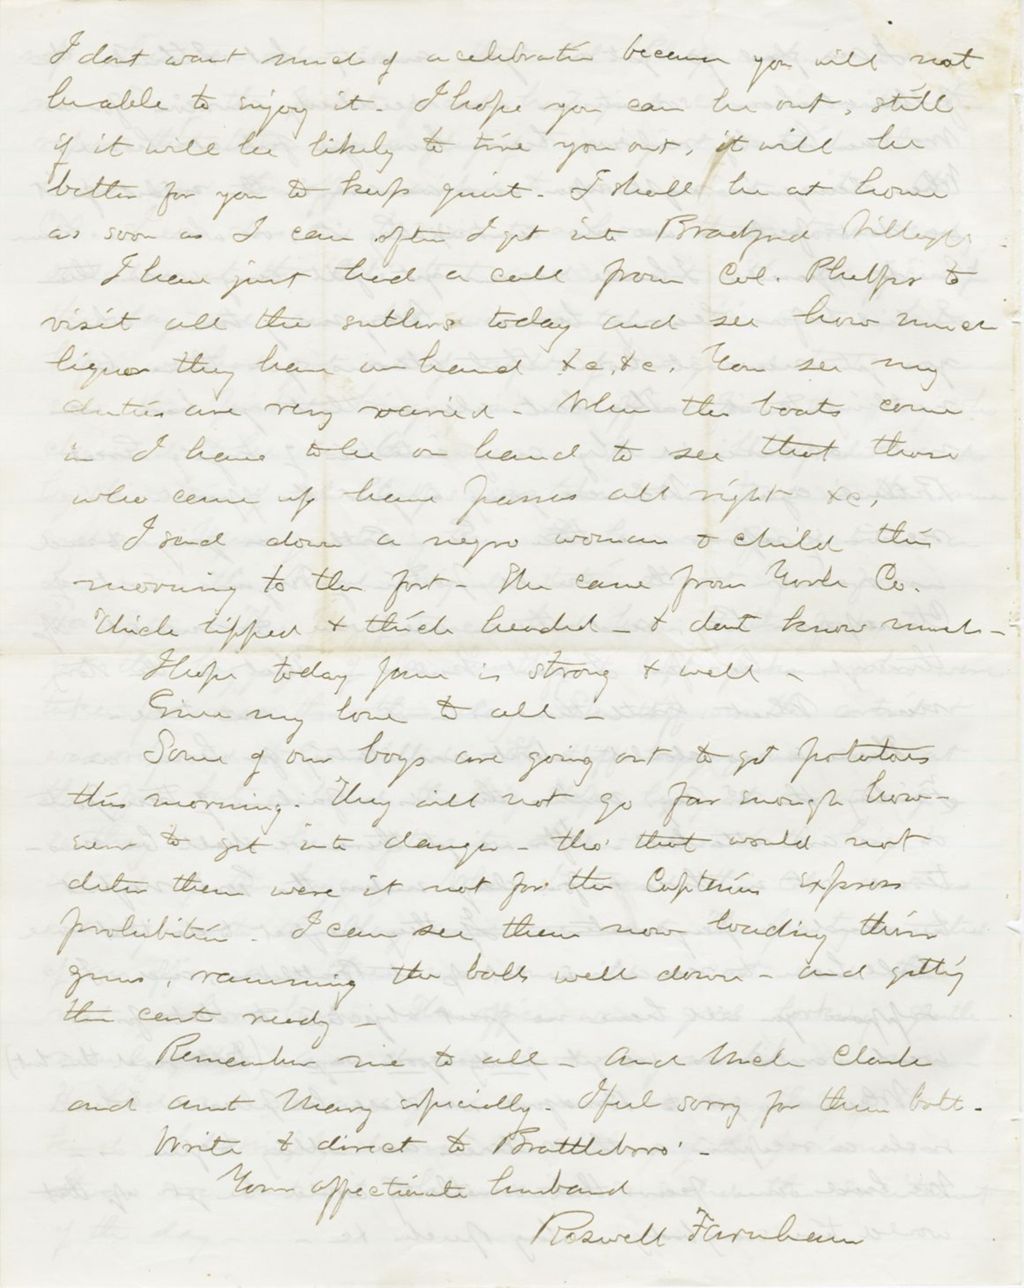 I dont want much of a celebration because you will not
be able to enjoy it. I hope you can be out, still
if it will be likely to tire you out, it will be
better for you to keep quiet. I shall be at home
as soon as I can after I get into Bradford Village.
I have just had a call from Col. Phelps to
visit all the sutlers today and see how much
liquor they have on hand &c, &c. You see my
duties are very varied - When the boats come
in I have to be on hand to see that those
who come up have passes all right &c,
I send down a negro woman & child this
morning to the fort - She came from York Co.
Thick lipped & thick headed - & dont know much -
I hope today Jane is strong & well -
Give my love to all -
Some of our boys are going out to get potatoes
this morning. They will not go far enough how-
ever to get into danger - tho' that would not
deter them were it not for the Captains express
prohibition. I can see them now loading their
guns, ramming the balls well down - and getting
the cart ready -
Remember me to all - And Uncle Clark
and aunt Mary especially. I feel sorry for them both -
Write & direct to Brattleboro' -
Your affectionate husband
Roswell Farnham